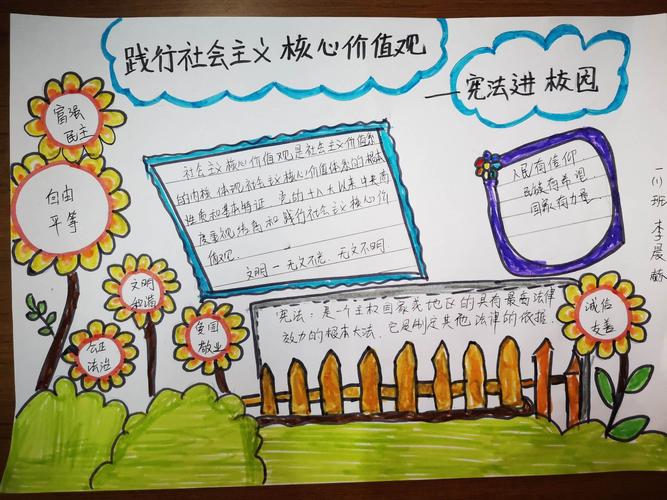 践行社会主义核心价值观
——宪法进校园
富强
民主
自由
平等
文明
和谐
公正
法治
爱国
敬业
诚信
友善
社会主义核心价值观是社会主义价值系
的内核 体现社会主义核心价值体系的根本
性质和基本特征 党的十八大以来中央高
度重视培育和践行社会主义核心价
值观.
文明一无文不
无文不明
人民有信仰
民族有希望
国家有力量
宪法：是一个主权国家或地区的具有最高法律
效力的根本大法.它是制定其他法律的依据.
一(1)班 李晨